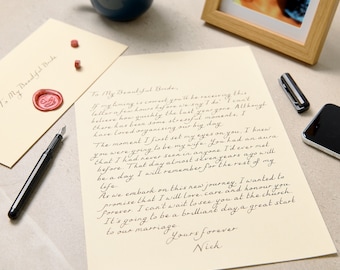 To My Beautiful Bride
To My Beautiful Bride,
If my timing is correct you'll be receiving this
letter an hour before we say 'I do'. I can't
believe how quickly the last year has gone. Although
there has been some stressful moments, I
have loved organising our big day.
The moment I first set my eyes on you, I knew
you were going to be my wife. You had an aura
that I had never seen in anyone I'd ever met
before. That day almost seven years ago will
be a day I will remember for the rest of my
life.
As we embark on this new journey I wanted to
promise that I will love, care and honour you
forever. I can't wait to see you at the church.
It's going to be a brilliant day, a great start
to our marriage.
Yours forever
Nick